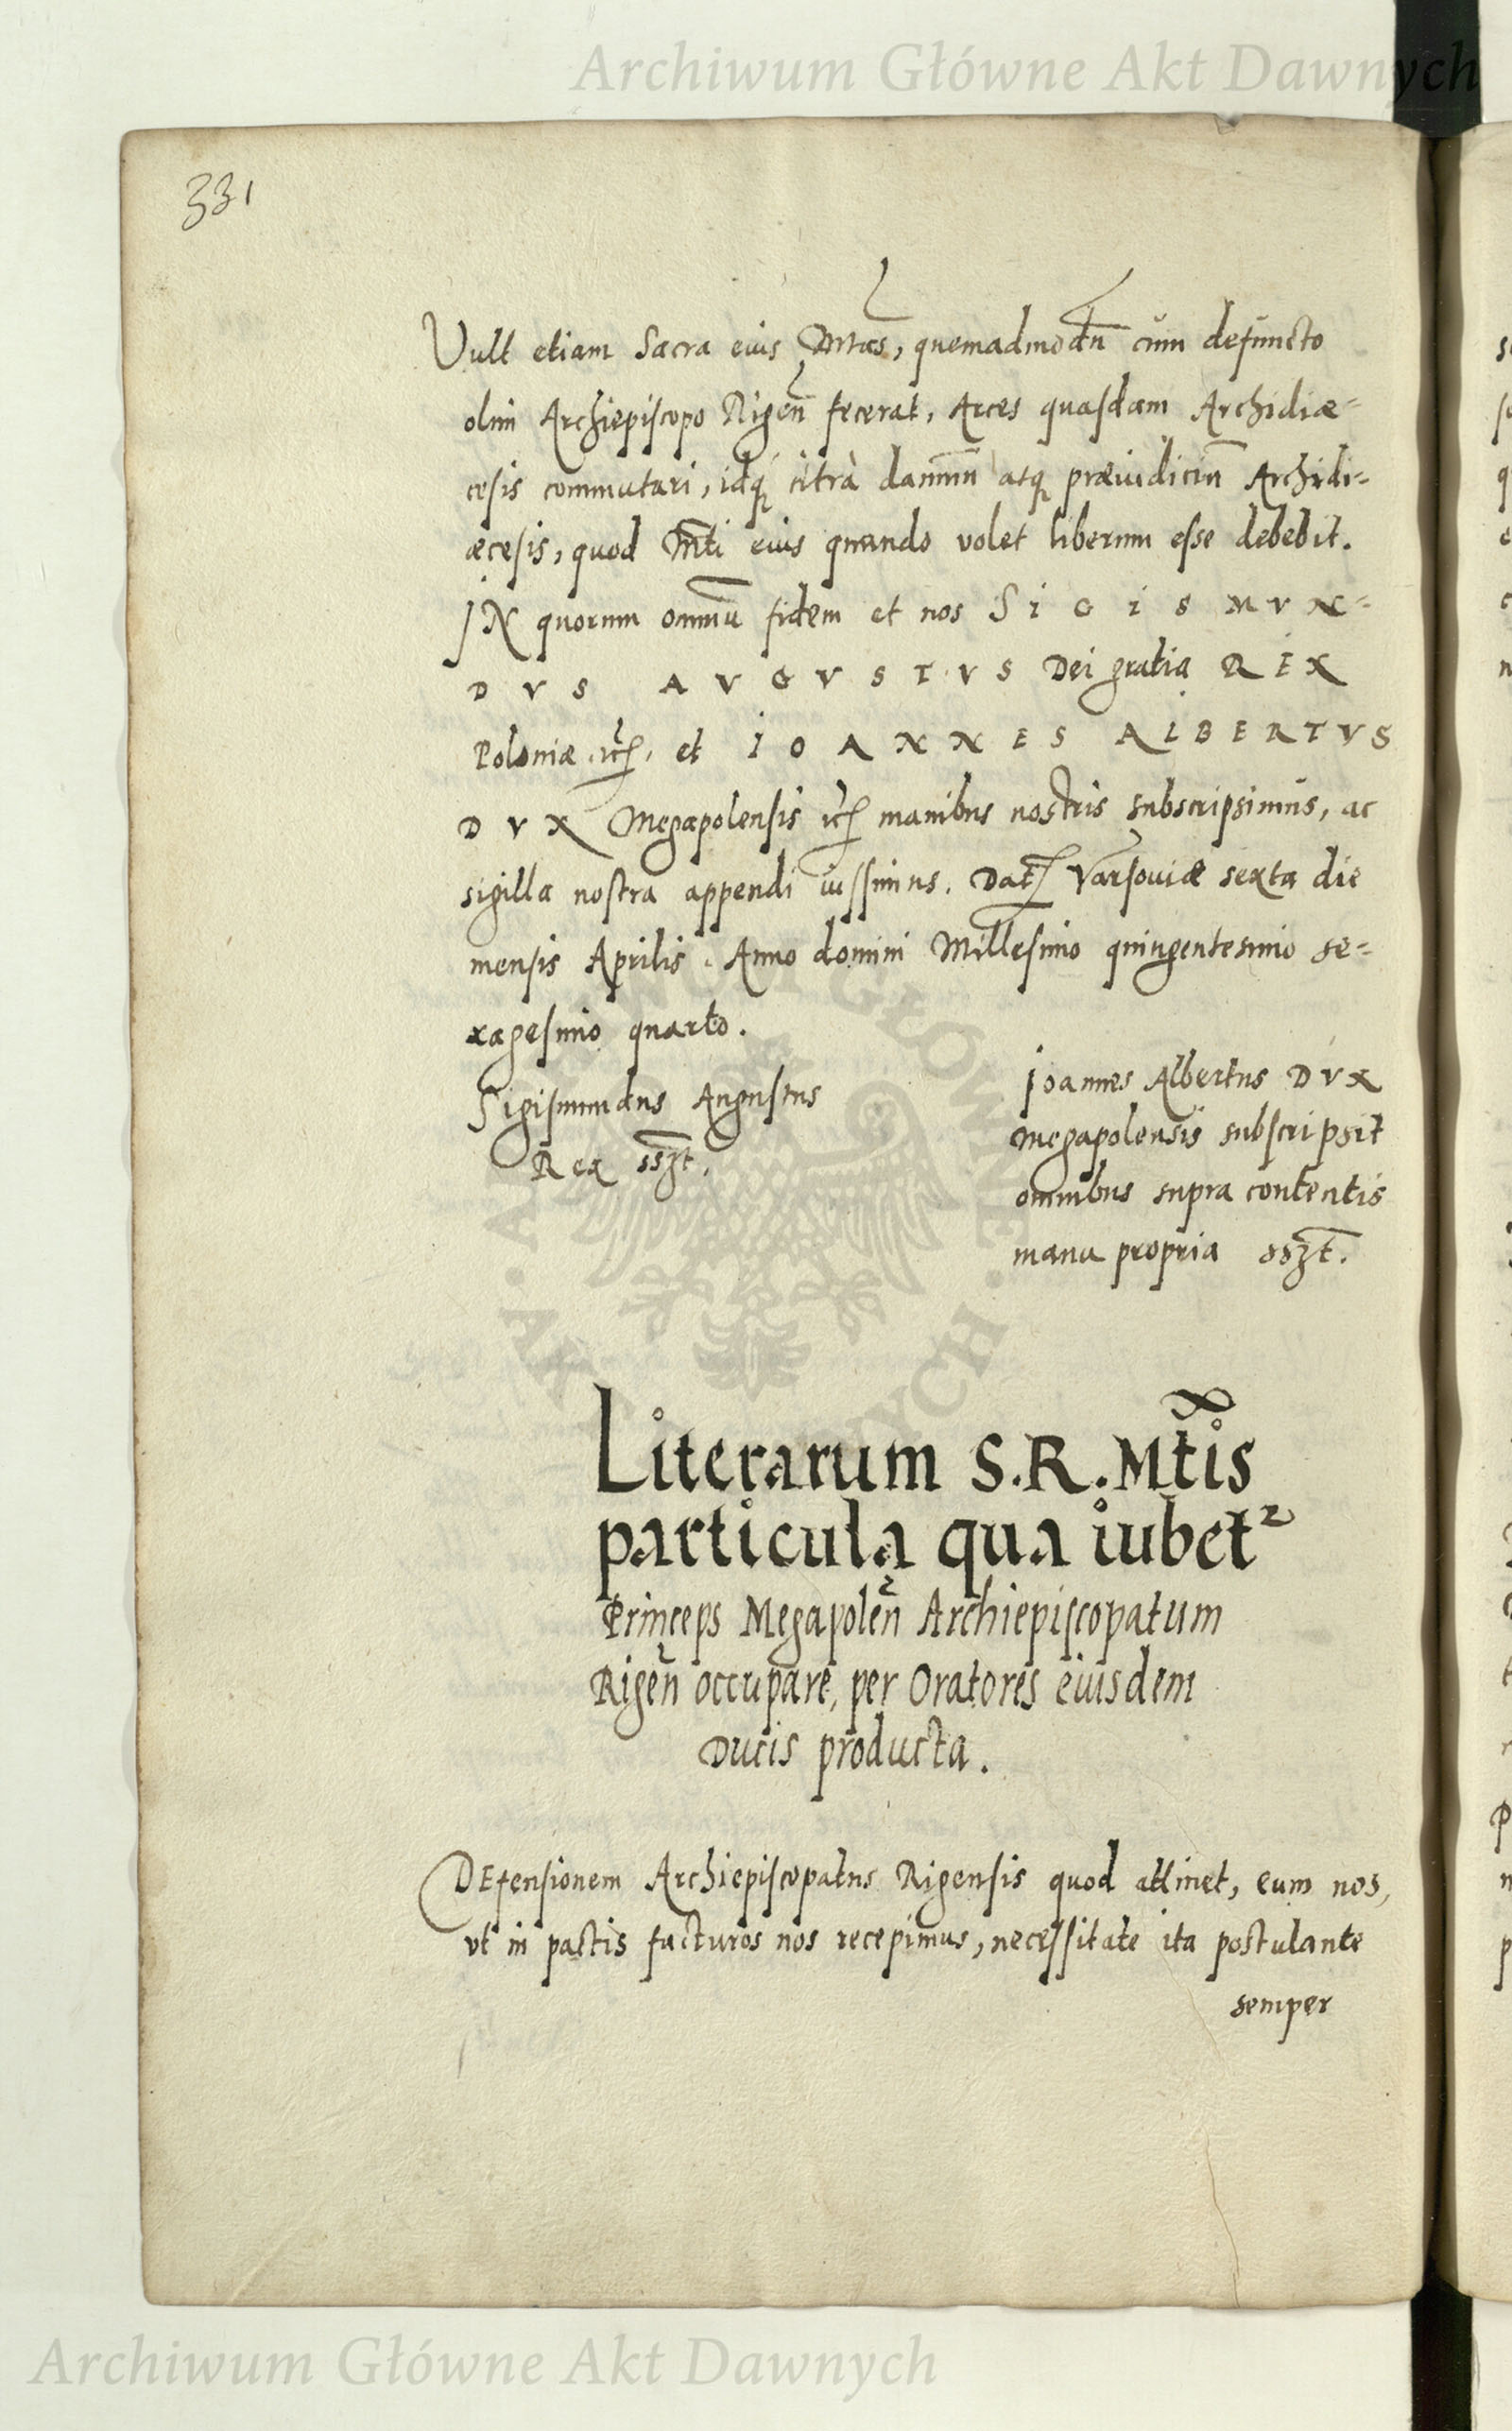 Archiwum Główne Akt Dawnych
331
Vult etiam Sacra eius Mtas, quemadmodũ cũm defuncto
olim Archiepiscopo Rigeñ fecerat, Arces quasdam Archidiæ-
cesis commutari, idq citrà damnũ atq præiudiciũ Archidi-
æcesis, quod Mti eius quando volet liberum esse debebit.
IN quorum omniũ fidem et nos SIGISMVN-
DVS AVGVSTVS Dei gratia REX
Poloniæ etc. et IOANNES ALBERTVS
DVX Megapolensis etc manibus nostris subscripsimus, ac
sigilla nostra appendi iussimus. Dat Varsouiæ sexta die
mensis Aprilis. Anno domini Millesimo quingentesimo se-
xagesimo quarto.
Sigismundus Augustus
Rex sszt.
Joannes Albertus DVX
Megapolensis subscripsit
omnibus supra contentis
manu propria sszt.
Literarum S.R.Mtis
particula qua iubet2
Princeps Megapoleñ Archiepiscopatum
Rigeñ occupare, per Oratores eiusdem
Ducis producta.
DEfensionem Archiepiscopatus Rigensis quod attinet, eum nos,
vt in pactis facturos nos recepimus, necessitate ita postulante
semper
Archiwum Główne Akt Dawnych